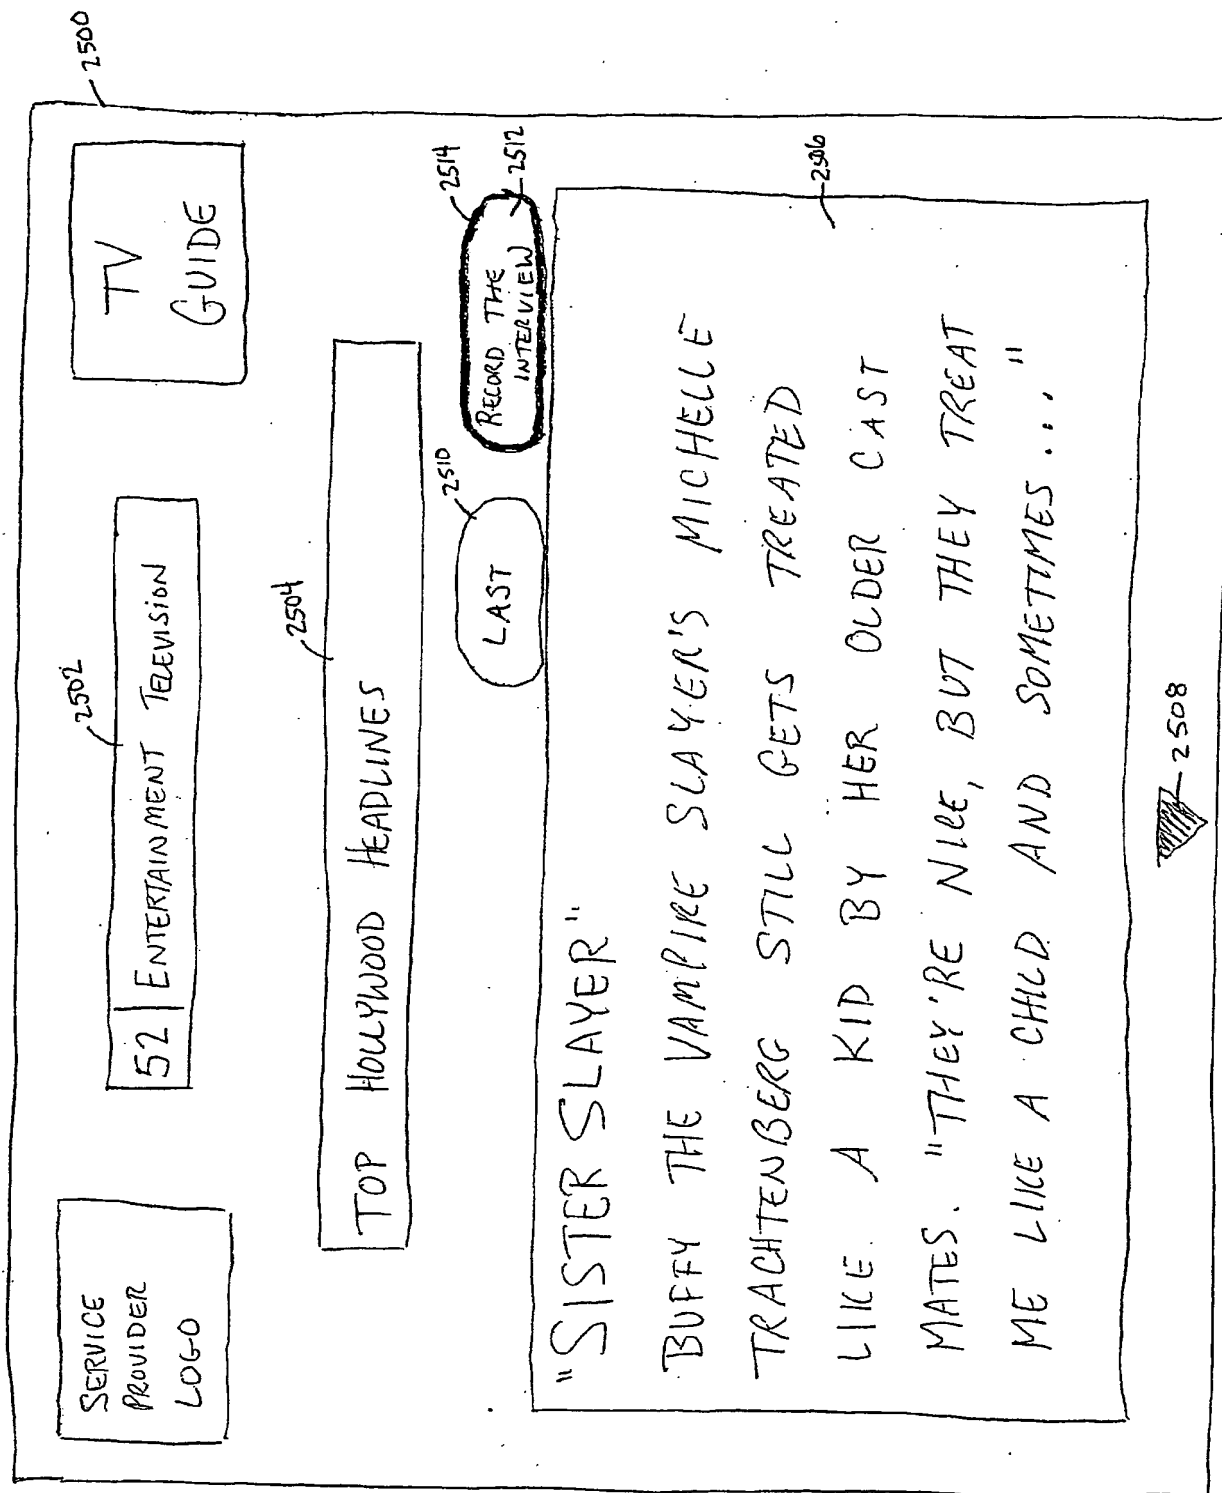 2500
SERVICE
PROVIDER
LOGO
2502
52 | ENTERTAINMENT TELEVISION
TV
GUIDE
2504
TOP HOLLYWOOD HEADLINES
2510
LAST
2514
RECORD THE
INTERVIEW
2512
2506
"SISTER SLAYER"
BUFFY THE VAMPIRE SLAYER'S MICHELLE
TRACHTENBERG STILL GETS TREATED
LIKE A KID BY HER OLDER CAST
MATES. "THEY'RE NICE, BUT THEY TREAT
ME LIKE A CHILD AND SOMETIMES..."
2508